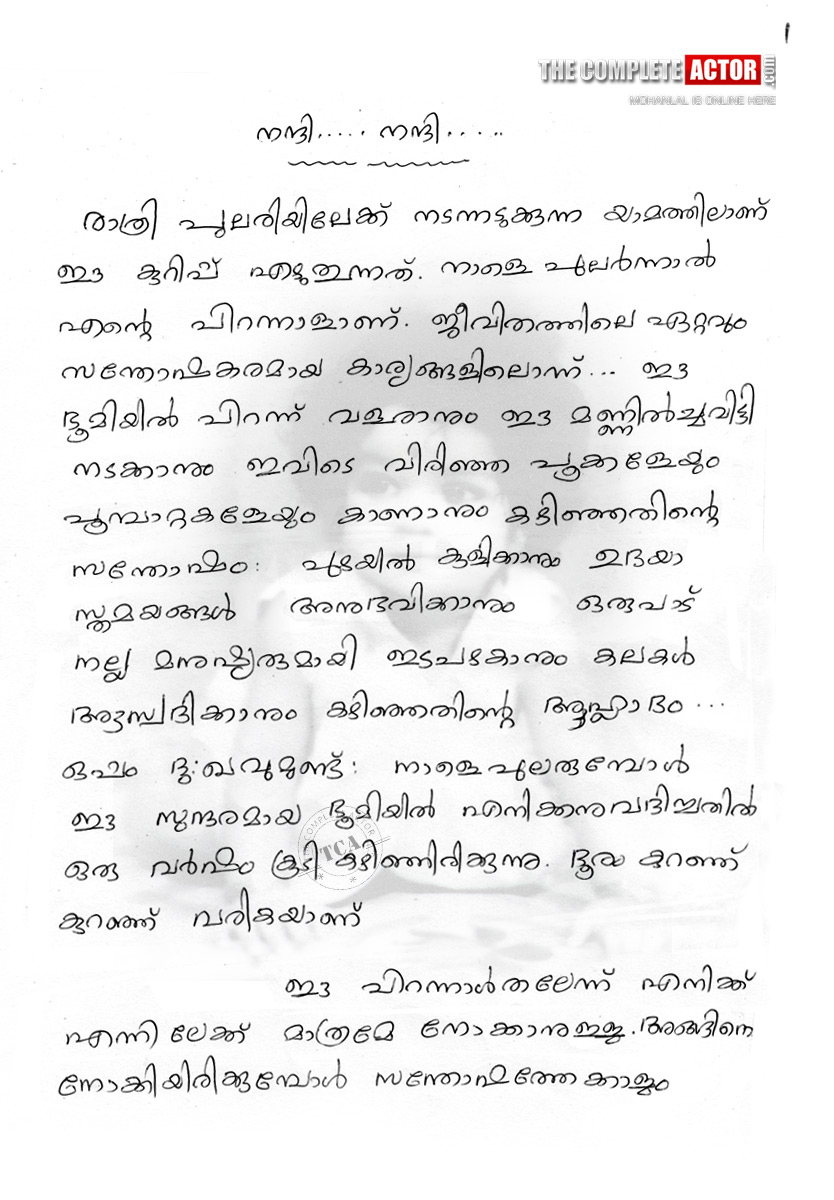 1
THE COMPLETE ACTOR.com
MOHANLAL IS ONLINE HERE
നന്ദി..... നന്ദി.....
രാത്രി പുലരിയിലേക്ക് നടന്നടുക്കുന്ന യാമത്തിലാണ്
ഈ കുറിപ്പ് എഴുതുന്നത്. നാളെ പുലർന്നാൽ
എന്റെ പിറന്നാളാണ്. ജീവിതത്തിലെ ഏറ്റവും
സന്തോഷകരമായ കാര്യങ്ങളിലൊന്ന്... ഈ
ഭൂമിയിൽ പിറന്ന് വളരാനും ഈ മണ്ണിൽച്ചവിട്ടി
നടക്കാനും ഇവിടെ വിരിഞ്ഞ പൂക്കളേയും
പൂമ്പാറ്റകളേയും കാണാനും കഴിഞ്ഞതിന്റെ
സന്തോഷം: പുഴയിൽ കുളിക്കാനും ഉദയാ
സ്തമയങ്ങൾ അനുഭവിക്കാനും ഒരുപാട്
നല്ല മനുഷ്യരുമായി ഇടപഴകാനും കലകൾ
ആസ്വദിക്കാനും കഴിഞ്ഞതിന്റെ ആഹ്ലാദം...
ഒപ്പം ദു:ഖവുമുണ്ട്: നാളെപുലരുമ്പോൾ
ഈ സുന്ദരമായ ഭൂമിയിൽ എനിക്കനുവദിച്ചതിൽ
ഒരു വർഷം കൂടി കഴിഞ്ഞിരിക്കുന്നു. ദൂരം കുറഞ്ഞ്
കുറഞ്ഞ് വരികയാണ്
ഈ പിറന്നാൾതലേന്ന് എനിക്ക്
എന്നിലേക്ക് മാത്രമേ നോക്കാനുള്ളൂ. അങ്ങിനെ
നോക്കിയിരിക്കുമ്പോൾ സന്തോഷത്തേക്കാളും
COMPLETE ACTOR
TCA